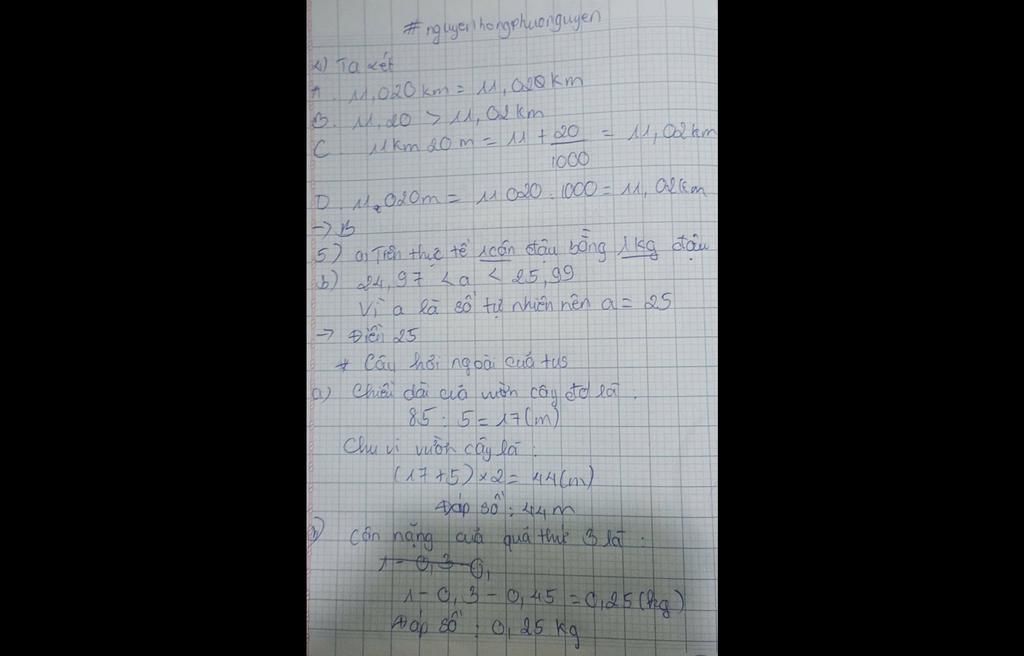 #nguyenhongphuonguyen
4) Ta xét
A. 11,020km = 11,020km
B. 11,20 > 11,02km
C 11km 20m = 11 + 20/1000 = 11,02km
D. 11 020m = 11 020 : 1000 = 11,02km
→ B
5) a, Trên thực tế 1 cân đậu bằng 1kg đậu
b) 24,97 < a < 25,99
Vì a là số tự nhiên nên a = 25
→ Điền 25
* Câu hỏi ngoài của tus
a) Chiều dài của vườn cây đó là :
85 : 5 = 17(m)
Chu vi vườn cây là :
(17+5) × 2 = 44(m)
Đáp số : 44m
b) Cân nặng của quả thứ 3 là :
1 - 0,3 - 0,
1 - 0,3 - 0,45 = 0,25(kg)
Đáp số : 0,25 kg